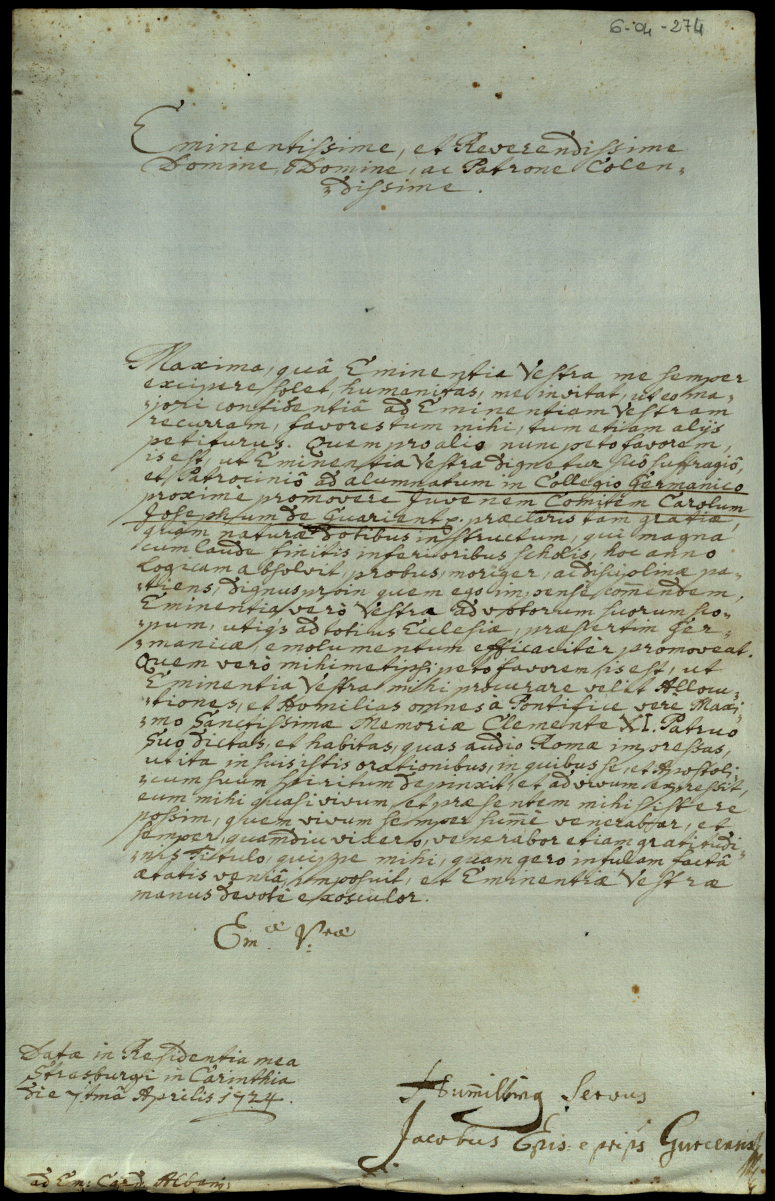 6-04-274
Eminentissime, et Reverendissime
Domine, Domine, ac Patrone Colen=
=dissime.
Maxima, quâ Eminentia Vestra me semper
excipere solet, humanitas, me invitat, ut eo ma=
=jori confidentiâ ad Eminentiam Vestram
recurram, favores tum mihi, tum etiam alijs
petiturus. Quem pro alio nunc peto favorem,
is est, ut Eminentia Vestra dignetur suô suffragiô,
et Patrociniô ad alumnatum in Collegio Germanico
proxime promovere Juvenem Comitem Carolum
Josephum de Guarient, præclaris tam gratiæ,
quam naturæ dotibus instructum, qui magna
cum laude finitis inferioribus scholis, hoc anno
Logicam absolvit, probus, moriger, ac disciplinæ pa=
=tiens, dignus proin quem ego impense commendem,
Eminentia verò Vestra ad votorum suorum sco=
=pum, utiq3 ad totius Ecclesiæ, præsertim Ger=
=manicæ, emolumentum efficaciter promoveat.
Quem verò mihimetipsi peto favorem is est, ut
Eminentia Vestra mihi procurare velit Allocu=
=tiones, et Homilias omnes à Pontifice vere Maxi=
=mo Sanctissimæ Memoriæ Clemente XI. Patruo
Suo dictas, et habitas, quas audio Romæ impressas,
ut ita in suis istis orationibus, in quibus se, et Apostoli=
=cum suum spiritum depinxit, et ad vivum expressit,
eum mihi quasi vivum, et præsentem mihi sistere
possim, quem vivum semper summè venerabar, et
semper, quamdiu vixero, venerabor etiam gratitudi=
=nis Titulo, quippe mihi, quam gero infulam factâ
ætatis veniâ, imposuit, et Eminentiæ Vestræ
manus devotè exosculor.
Em.æ V.ræ
Datæ in Residentia mea
Strasburgi in Carinthia
die 7timâ Aprilis 1724.
Humillimus Servus
Jacobus Epis: e prips Gurcensis
ad Em: Card: Albani: